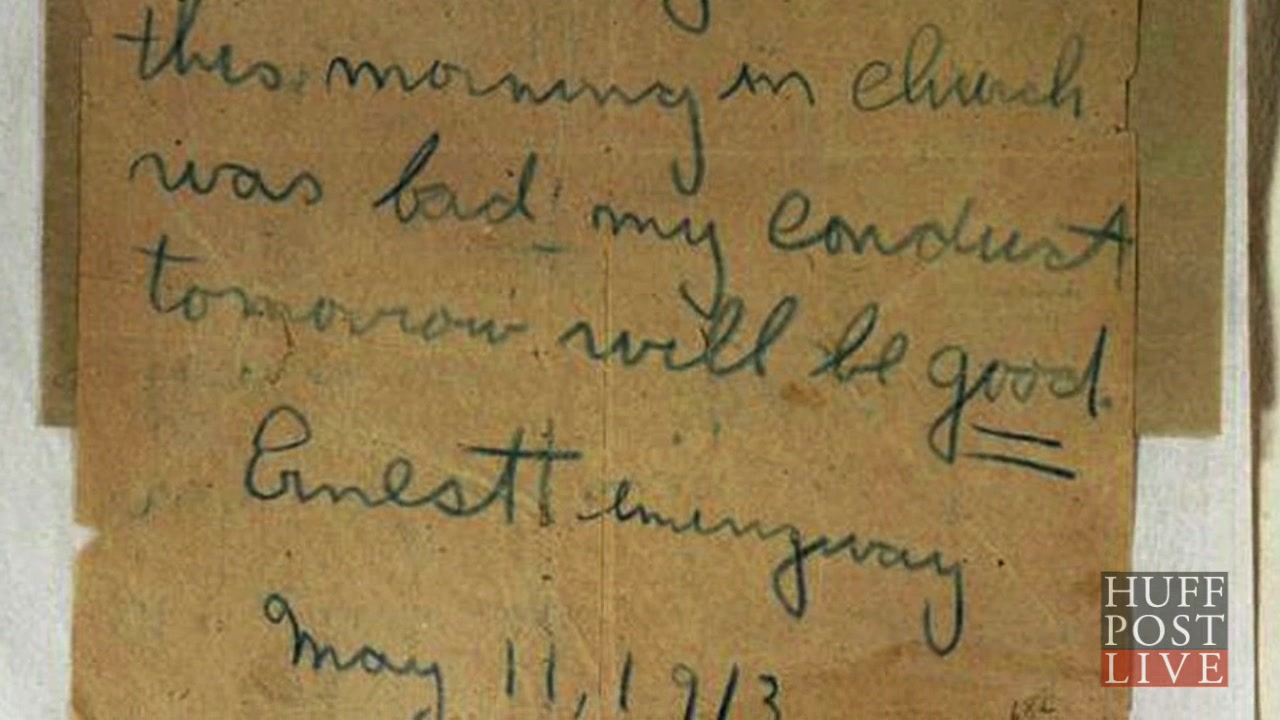 this morning in church
was bad my conduct
tomorrow will be good.
Ernest Hemingway.
May 11, 1913
HUFF
POST
LIVE